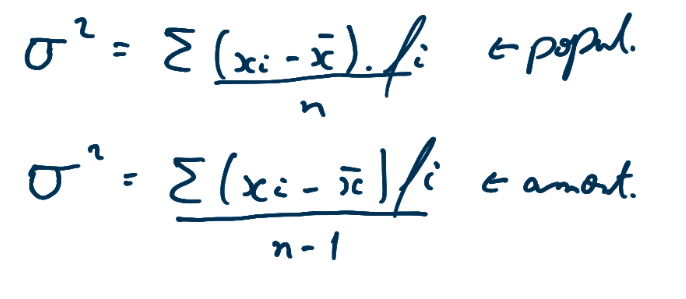 σ² = Σ (xi - x̄). fi / n ← popul.
σ² = Σ (xi - x̄) fi / n - 1 ← amost.